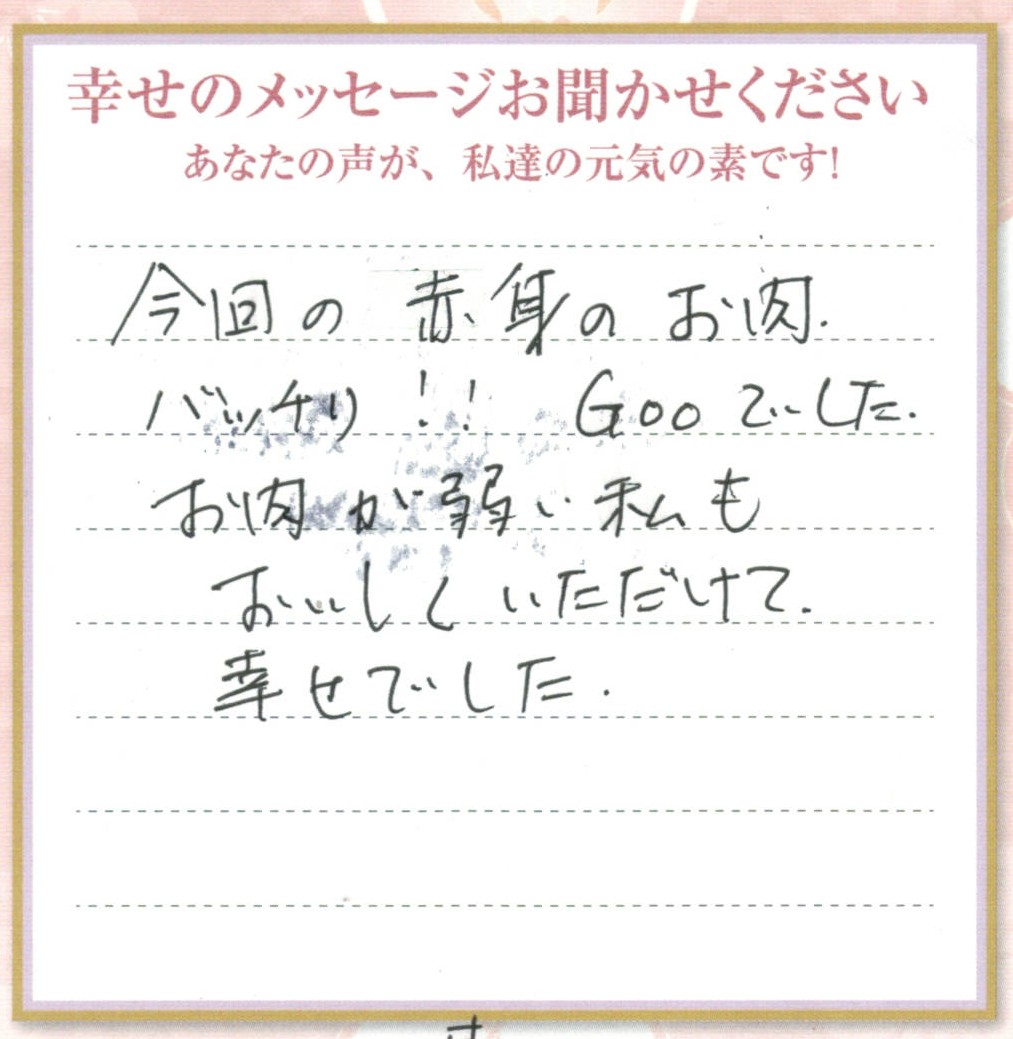 幸せのメッセージお聞かせください
あなたの声が、私達の元気の素です!
今回の赤身のお肉.
バッチリ!! Gooでした.
お肉が弱い私も
おいしくいただけて.
幸せでした.